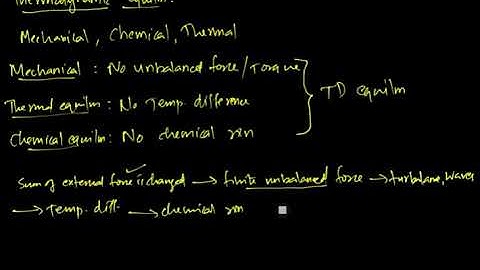 Thermodynamic equilm:
Mechanical, Chemical, Thermal
Mechanical : No unbalanced force/Torque
Thermal equilm: No Temp. difference
Chemical equilm: No chemical rxn
TD equilm
Sum of external force is changed → finite unbalanced force → turbulance, waves
→ Temp. diff. → chemical rxn